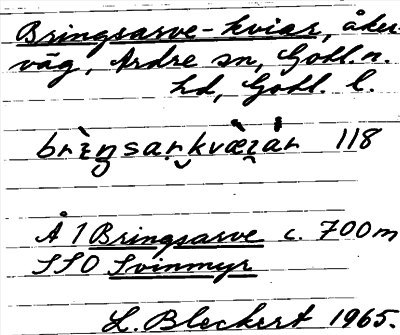 Bringsarve-kviar, åker-
väg, Ardre sn, Gotl. n.
hd, Gotl. l.
118
Å 1 Bringsarve c. 700m
SSO Svinmyr
L. Bleckert 1965.